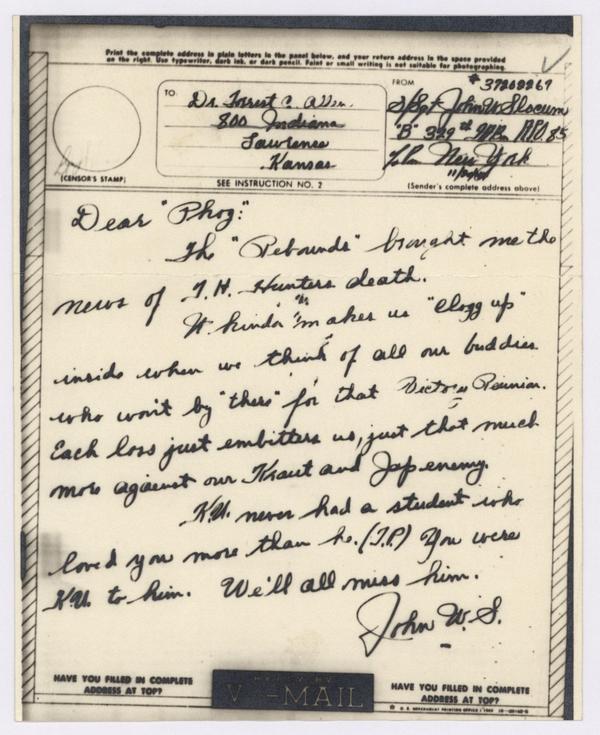 Print the complete address in plain letters in the panel below, and your return address in the space provided
on the right. Use typewriter, dark ink, or dark pencil. Faint or small writing is not suitable for photographing.
TO:
Dr. Forrest C. Allen.
800 Indiana
Lawrence
Kansas
FROM
# 37202267
S/Sgt John W Slocum
"B" 329th APO. 85
New York
(CENSOR'S STAMP)
SEE INSTRUCTION NO. 2
(Sender's complete address above)
Dear "Phog":
The "Rebounds" brought me the
news of T.H. Hunters death.
It kinda makes us "clogg up"
inside when we think of all our buddies
who won't by "there" for that Victory Reunion.
Each loss just embitters us, just that much
more against our Kraut and Jap enemy.
K.U. never had a student who
loved you more than he. (T.P.) You were
K.U. to him. We'll all miss him.
John W. S.
HAVE YOU FILLED IN COMPLETE
ADDRESS AT TOP?
V -MAIL
HAVE YOU FILLED IN COMPLETE
ADDRESS AT TOP?